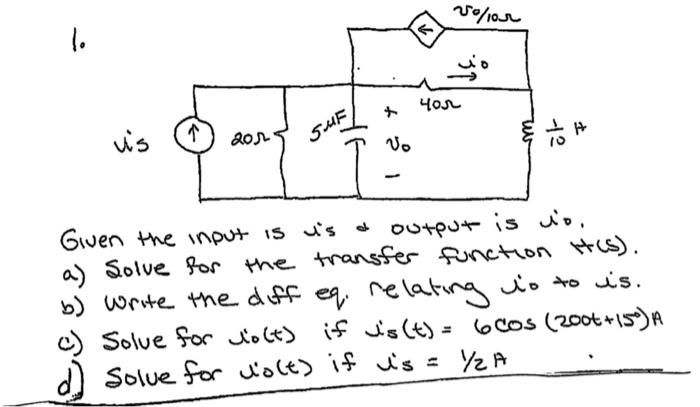 1.
vo/10Ω
io
40Ω
is
20Ω
5μF
+
vo
-
1/10 H
Given the input is is & output is io.
a) Solve for the transfer function H(s).
b) Write the diff eq. relating io to is.
c) Solve for io(t) if is(t) = 6cos(200t+15°)A
d) Solve for io(t) if is = 1/2 A